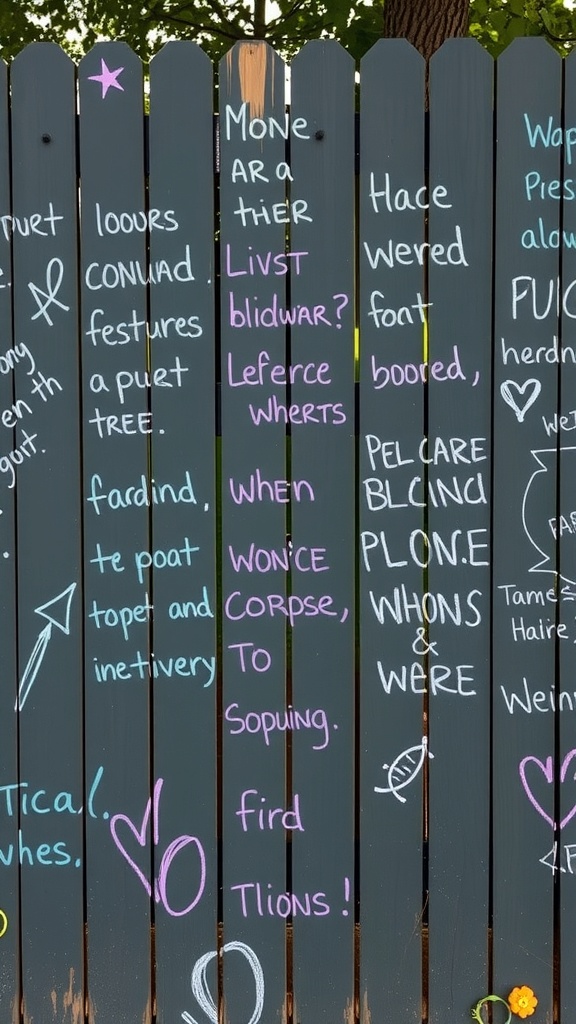 puet
ony
en th
gurt.
Tical.
whes.
loours
CONUAD.
festures
a puet
TREE.
fardind,
te poat
topet and
inetivery
MONE
AR a
tHER
LIVST
blidwar?
Leferce
WHERTS
WHEN
WON'CE
CORPSE,
TO
Sopuing.
fird
Tlions!
Hace
wered
font
boored,
PEL CARE
BLCINCI
PLON.E
WHONS
&
WERE
Wap
Pres
alow
FUIC
herdn
WeI
FAR
Tames
Haire,
Wein